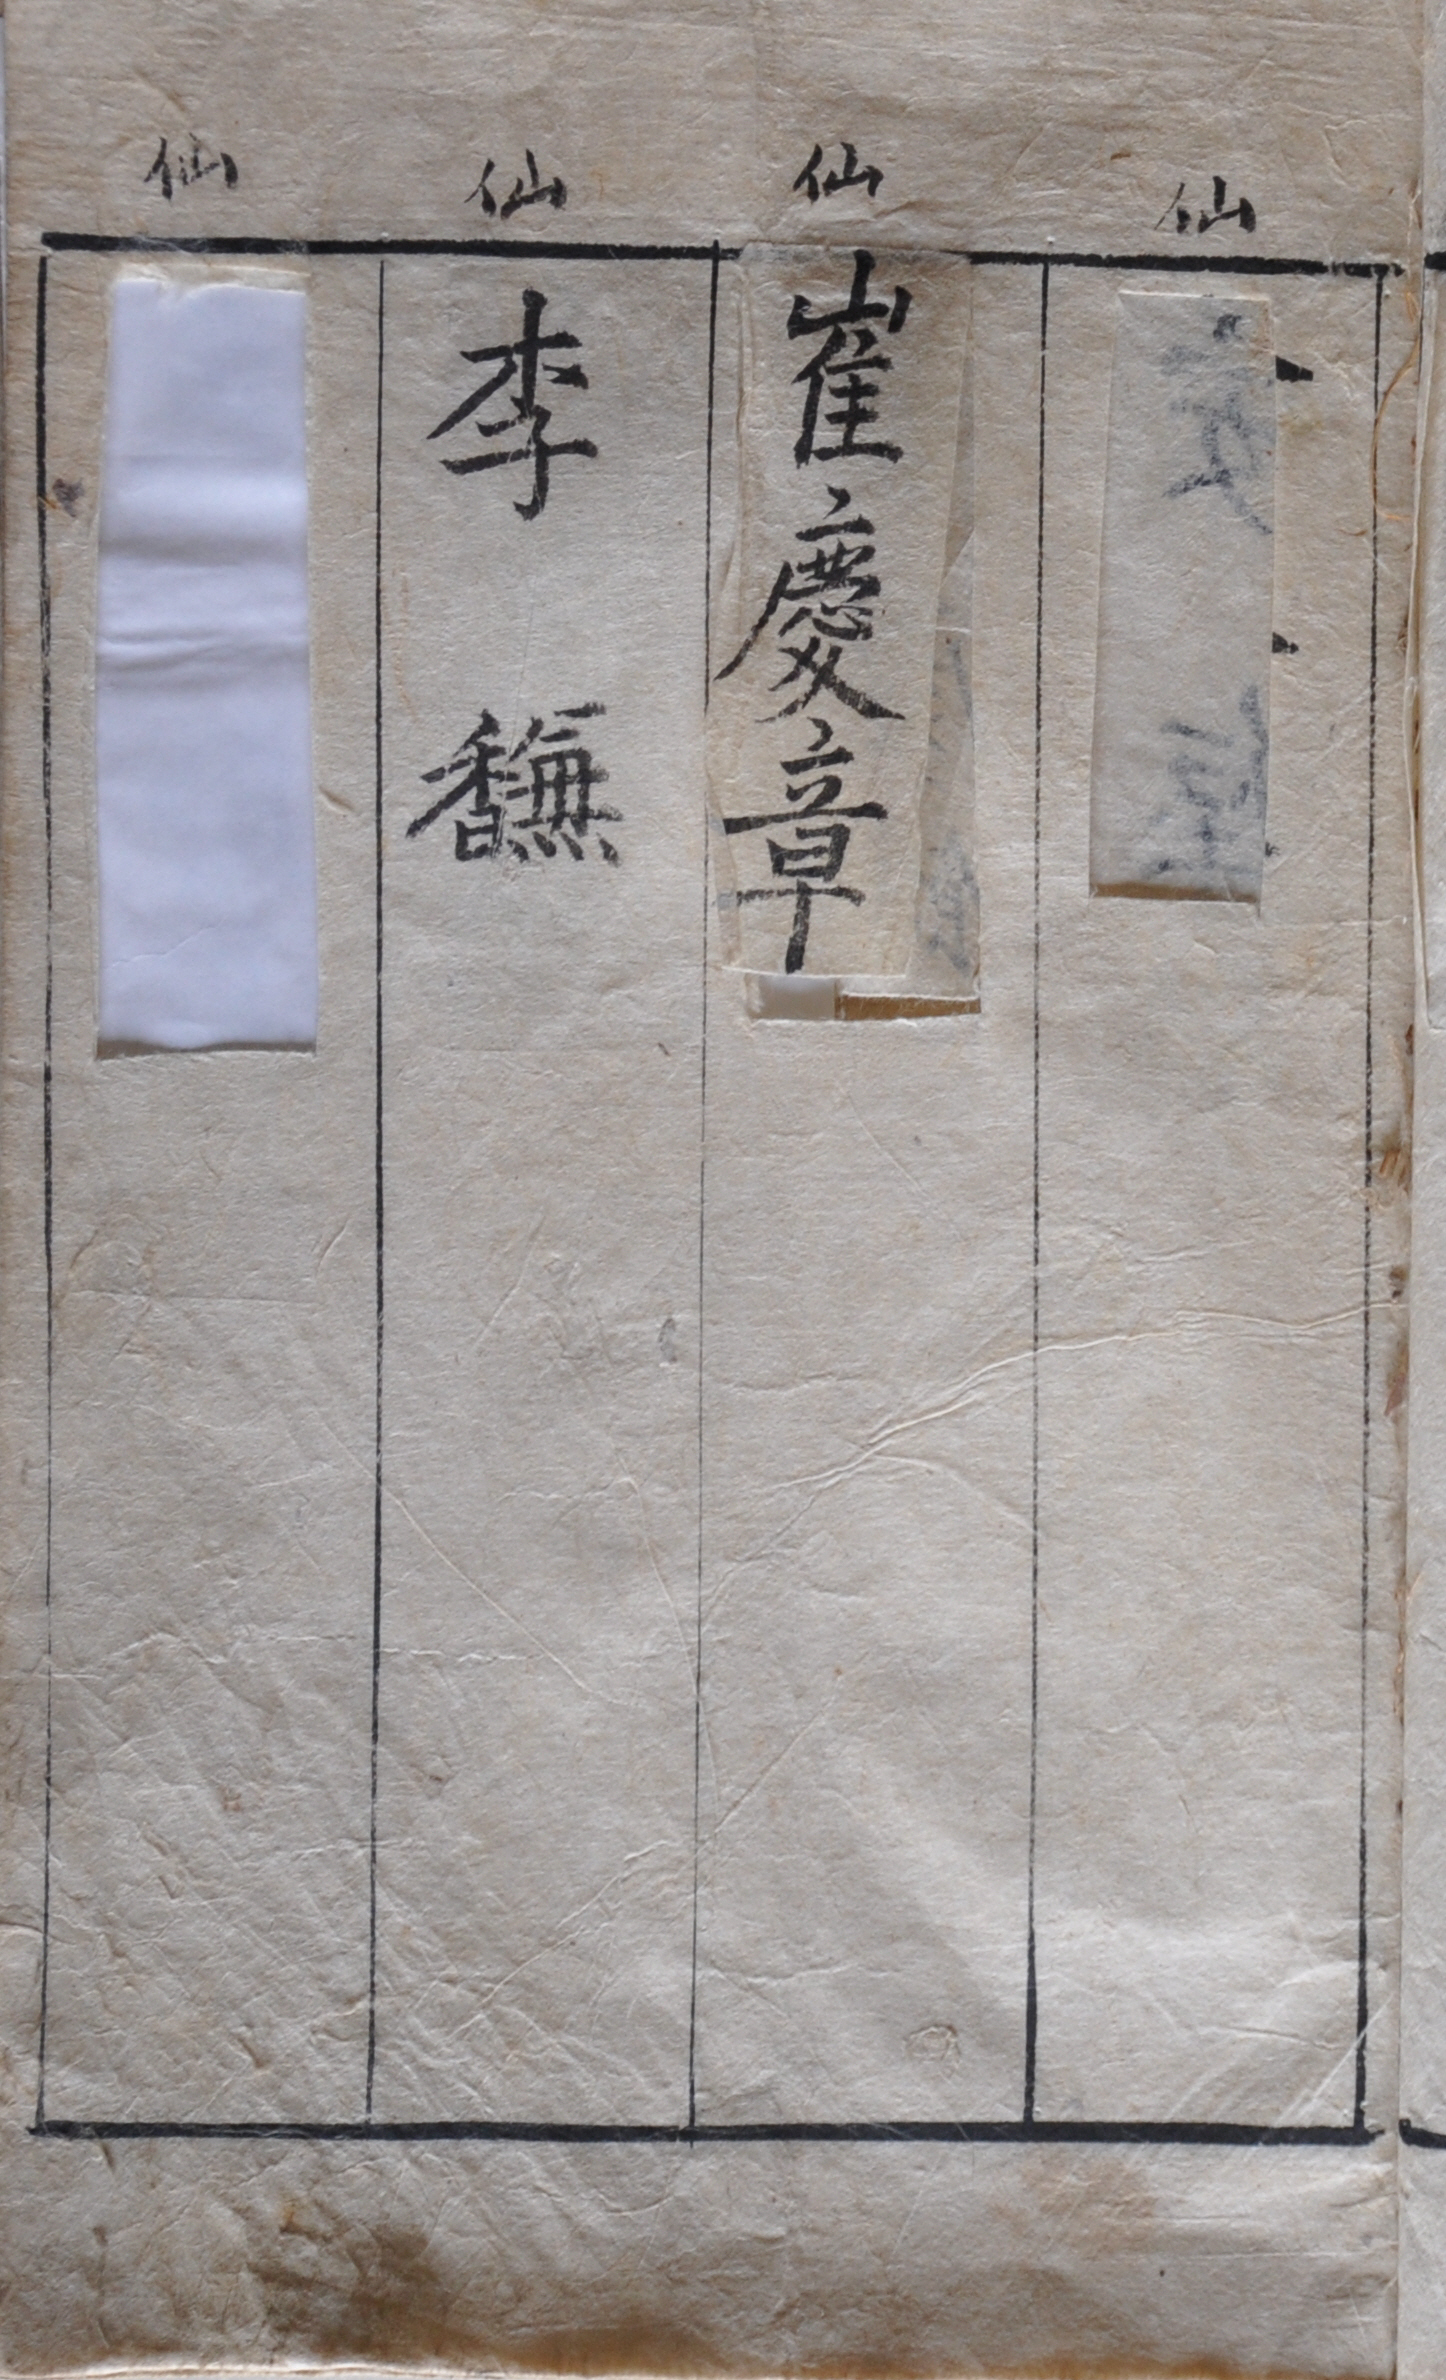 仙
仙
崔慶章
仙
李𪐎
仙